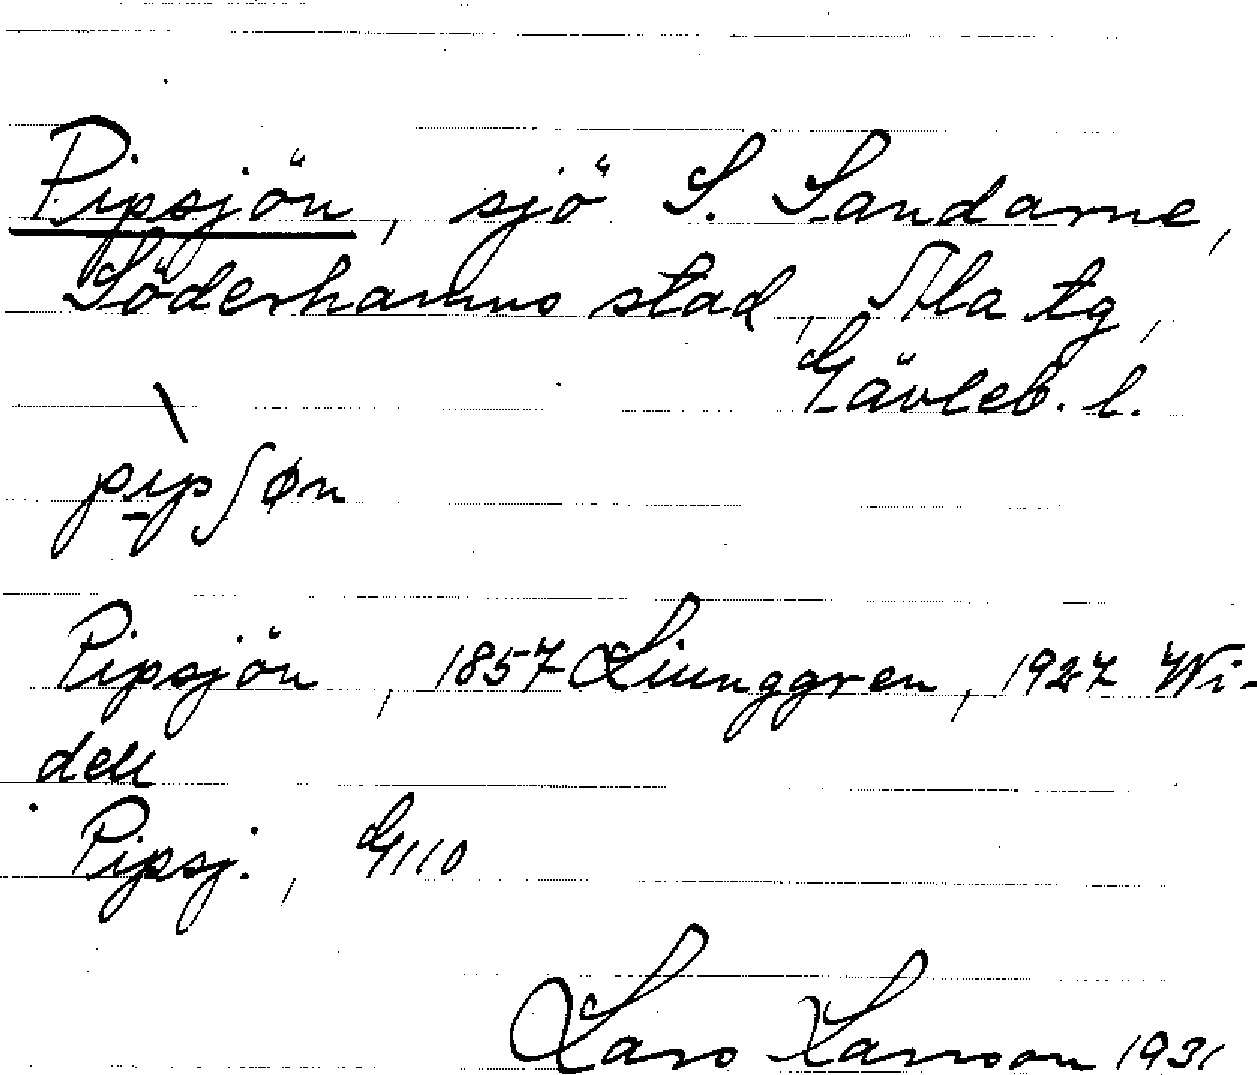 Pipsjön, sjö S. Sandarne,
Söderhamns stad, Ala tg,
Gävleb. l.
pipʃøn
Pipsjön, 1857 Liunggren, 1927 Wi-
dell
Pipsj., G110
Lars Larsson 1931